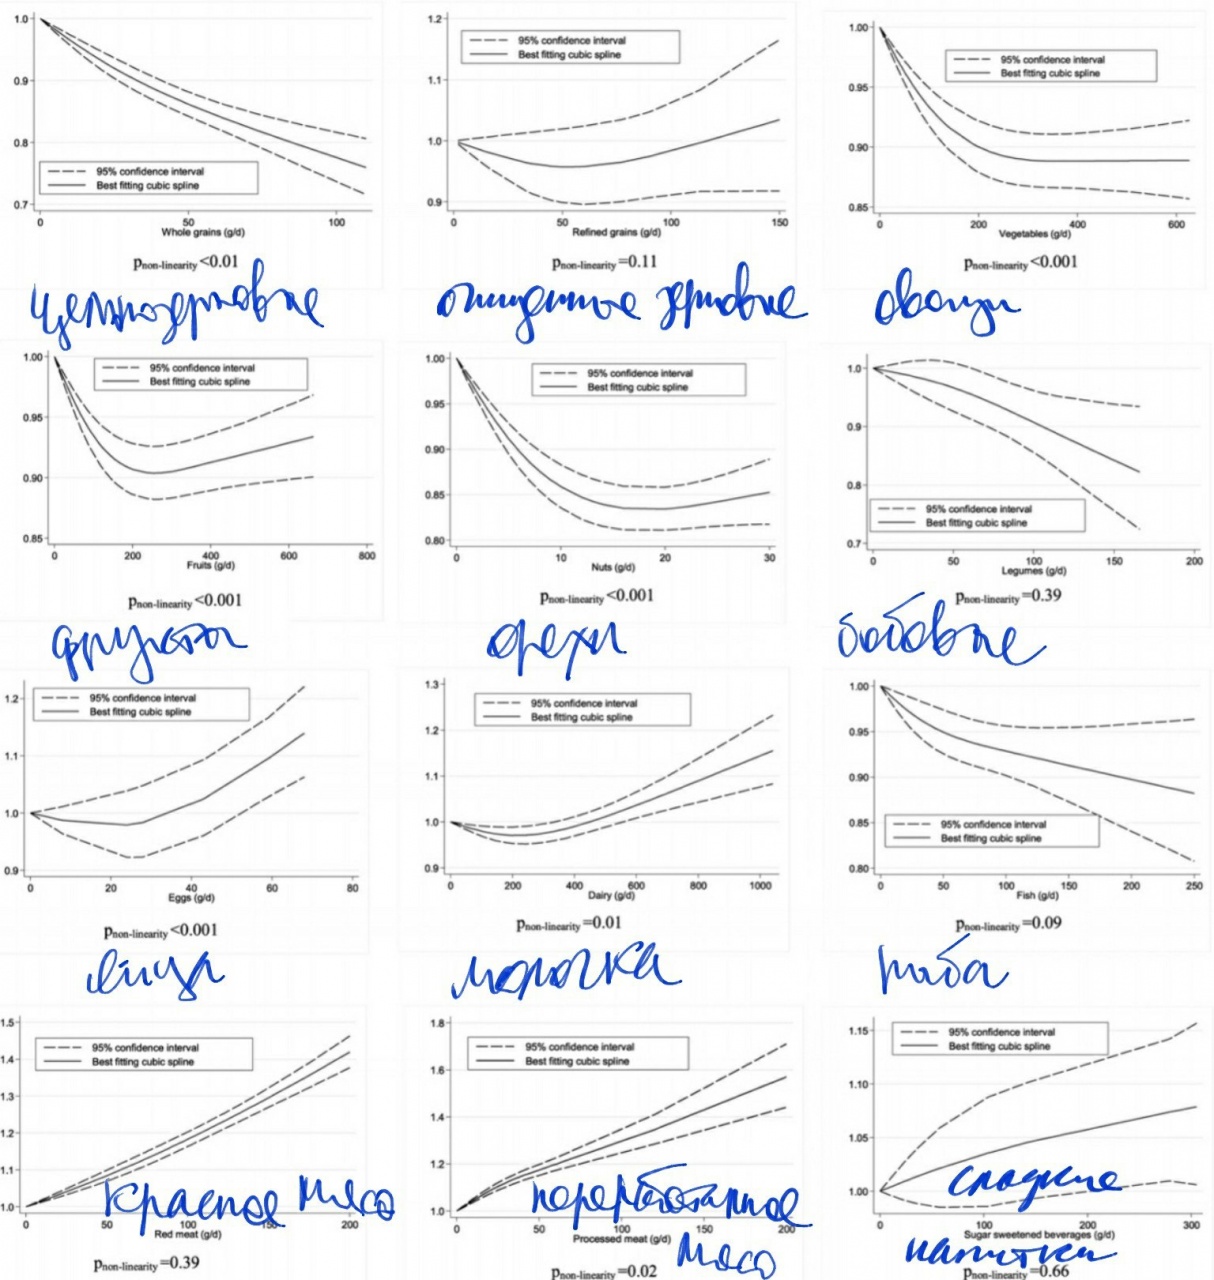 1.0
0.9
0.8
0.7
95% confidence interval
Best fitting cubic spline
0 50 100
Whole grains (g/d)
pnon-linearity<0.01
цельнозерновые
1.2
1.1
1.0
0.9
95% confidence interval
Best fitting cubic spline
0 50 100 150
Refined grains (g/d)
pnon-linearity=0.11
очищенные зерновые
1.00
0.95
0.90
0.85
95% confidence interval
Best fitting cubic spline
0 200 400 600
Vegetables (g/d)
pnon-linearity<0.001
овощи
1.00
0.95
0.90
0.85
95% confidence interval
Best fitting cubic spline
0 200 400 600 800
Fruits (g/d)
pnon-linearity<0.001
фрукты
1.00
0.95
0.90
0.85
0.80
95% confidence interval
Best fitting cubic spline
0 10 20 30
Nuts (g/d)
pnon-linearity<0.001
орехи
1.0
0.9
0.8
0.7
95% confidence interval
Best fitting cubic spline
0 50 100 150 200
Legumes (g/d)
pnon-linearity=0.39
бобовые
1.2
1.1
1.0
0.9
95% confidence interval
Best fitting cubic spline
0 20 40 60 80
Eggs (g/d)
pnon-linearity<0.001
яйца
1.3
1.2
1.1
1.0
0.9
95% confidence interval
Best fitting cubic spline
0 200 400 600 800 1000
Dairy (g/d)
pnon-linearity=0.01
молочка
1.00
0.95
0.90
0.85
0.80
95% confidence interval
Best fitting cubic spline
0 50 100 150 200 250
Fish (g/d)
pnon-linearity=0.09
рыба
1.5
1.4
1.3
1.2
1.1
1.0
95% confidence interval
Best fitting cubic spline
красное мясо
0 50 100 150 200
Red meat (g/d)
pnon-linearity=0.39
1.8
1.6
1.4
1.2
1.0
95% confidence interval
Best fitting cubic spline
переработанное
0 50 100 150 200
Processed meat (g/d)
мясо
pnon-linearity=0.02
1.15
1.10
1.05
1.00
95% confidence interval
Best fitting cubic spline
сладкие
0 100 200 300
Sugar sweetened beverages (g/d)
напитки
pnon-linearity=0.66